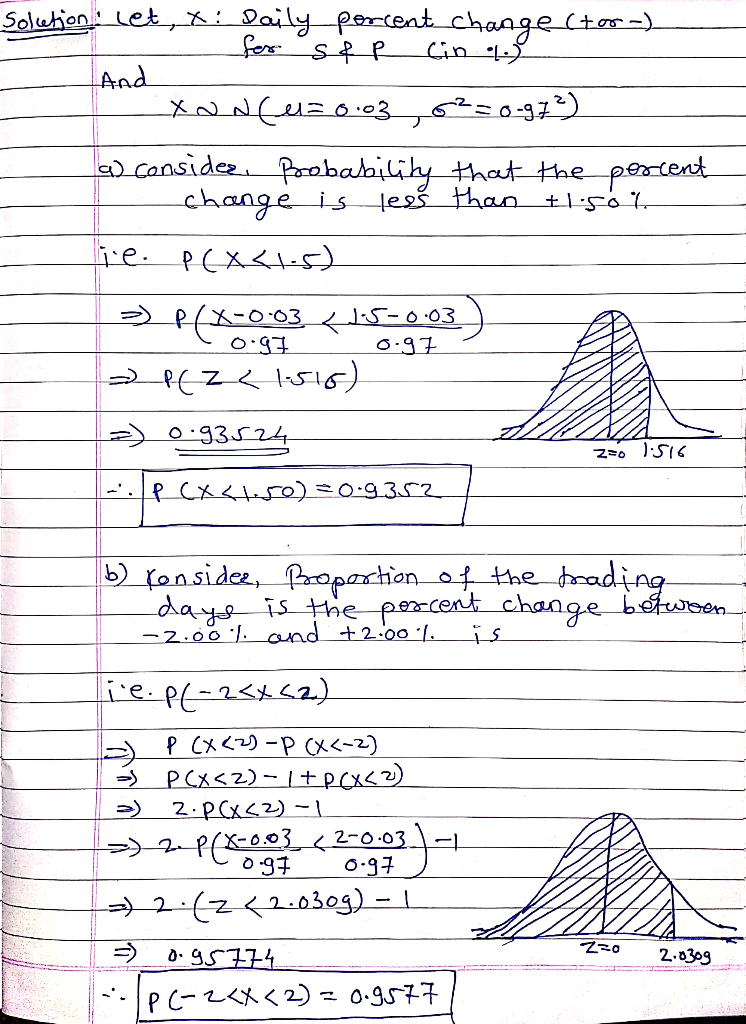 Solution: Let, X: Daily percent change (+ or -)
for S & P (in %)
And
X ~ N(μ = 0.03, σ² = 0.97²)
a) consider, Probability that the percent
change is less than +1.50 %.
i.e. P(X < 1.5)
⇒ P(X-0.03/0.97 < 1.5-0.03/0.97)
⇒ P(Z < 1.516)
⇒ 0.93524
Z=0 1.516
∴ P(X<1.50) = 0.9352
b) Consider, Proportion of the trading
days is the percent change between
-2.00 %. and +2.00 %. is
i.e. P(-2<X<2)
⇒ P(X<2) - P(X<-2)
⇒ P(X<2) - 1 + P(X<2)
⇒ 2.P(X<2) - 1
⇒ 2. P(X-0.03/0.97 < 2-0.03/0.97) - 1
⇒ 2.(Z < 2.0309) - 1
⇒ 0.95774
Z=0 2.0309
∴ P(-2<X<2) = 0.9577